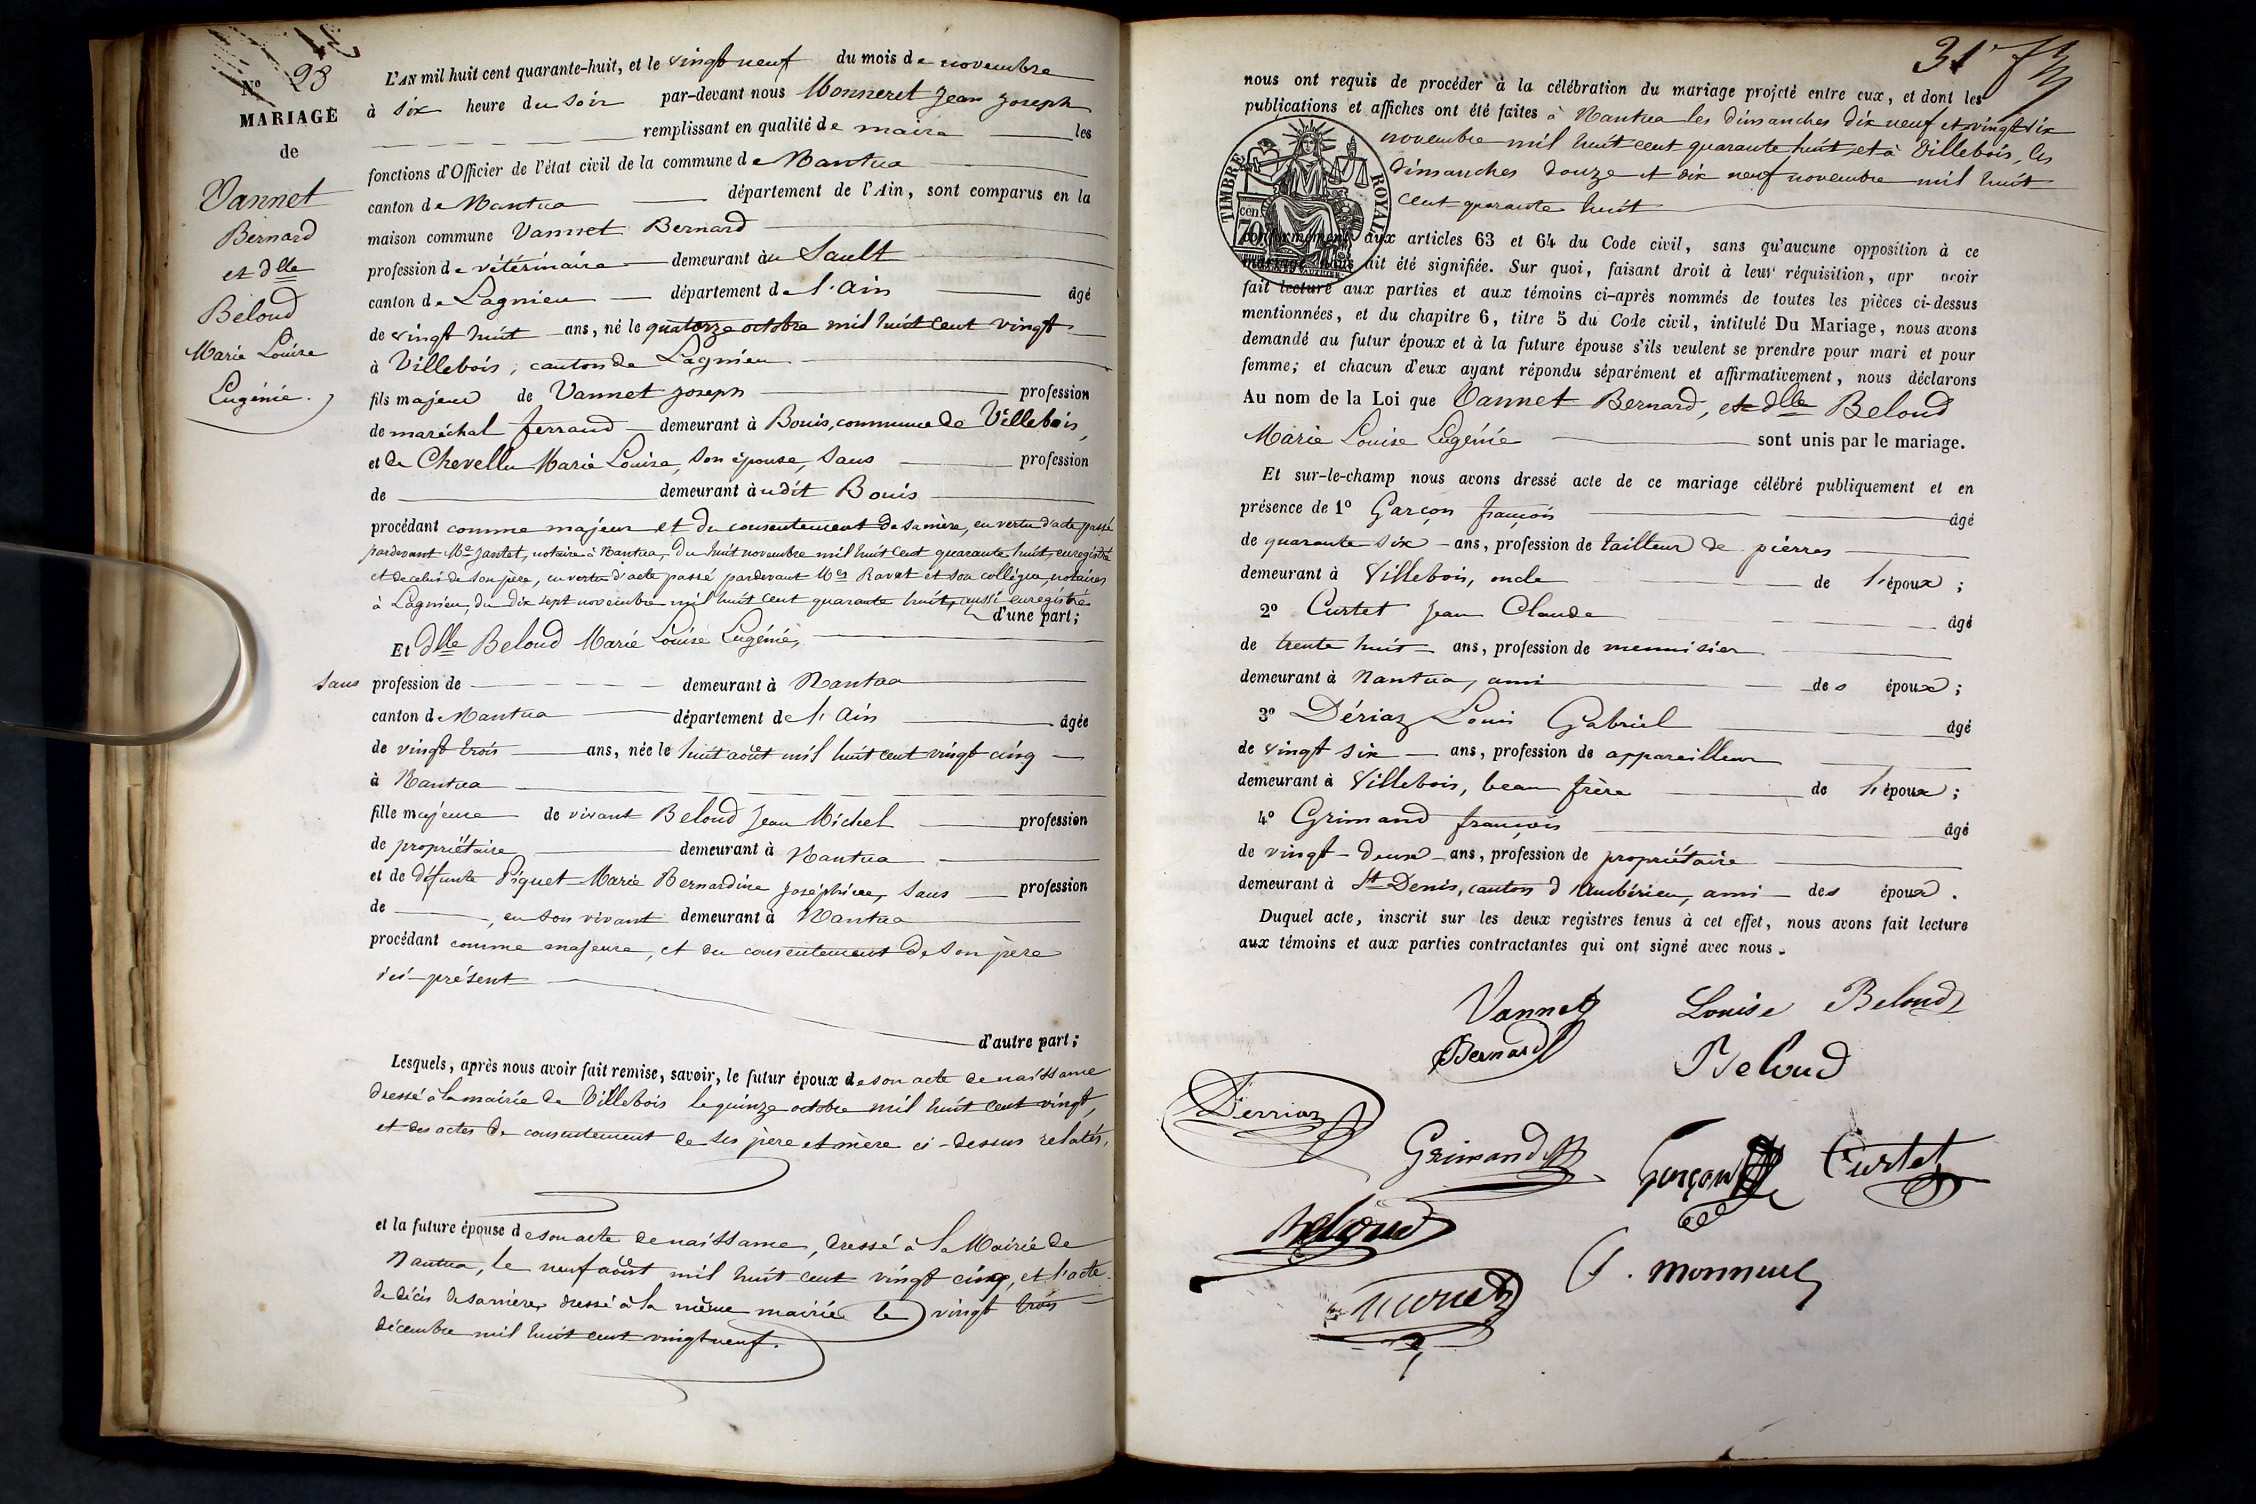 31
N° 23
MARIAGE
de
Vannet
Bernard
et dlle
Beloud
Marie Louise
Eugénie.
L'AN mil huit cent quarante-huit, et le vingt neuf du mois de novembre
à six heure du soir par-devant nous Monneret Jean Joseph
remplissant en qualité de maire les
fonctions d'Officier de l'état civil de la commune de Nantua
canton de Nantua département de l'Ain, sont comparus en la
maison commune Vannet Bernard
profession de vétérinaire demeurant au Sault
canton de Lagnieu département de l'Ain âgé
de vingt huit ans, né le quatorze octobre mil huit cent vingt
à Villebois, canton de Lagnieu
fils majeur de Vannet Joseph profession
de maréchal ferrand demeurant à Bouis, commune de Villebois,
et de Chevellu Marie Louise, son épouse, sans profession
de demeurant audit Bouis
procédant comme majeur et du consentement de sa mère, en vertu d'acte passé
pardevant Me Jantet, notaire à Nantua, du huit novembre mil huit cent quarante huit, enregistré
et de celui de son père, en vertu d'acte passé pardevant Mes Ravat et son collègue, notaires
à Lagnieu, du dix sept novembre mil huit cent quarante huit, aussi enregistré
d'une part;
Et dlle Beloud Marie Louise Eugénie,
sans profession de demeurant à Nantua
canton de Nantua département de l'Ain âgée
de vingt trois ans, née le huit août mil huit cent vingt cinq
à Nantua
fille majeure de vivant Beloud Jean Michel profession
de propriétaire demeurant à Nantua
et de défunte Piquet Marie Bernardine Joséphine, sans profession
de , en son vivant demeurant à Nantua
procédant comme majeure, et du consentement de son père
ici présent
d'autre part;
Lesquels, après nous avoir fait remise, savoir, le futur époux de son acte de naissance
dressé à la mairie de Villebois le quinze octobre mil huit cent vingt,
et des actes de consentement de ses père et mère ci-dessus relatés,
et la future épouse de son acte de naissance, dressé à la Mairie de
Nantua, le neuf août mil huit cent vingt cinq, et l'acte
de décès de sa mère, dressé à la même mairie le vingt trois
décembre mil huit cent vingt neuf.
31
nous ont requis de procéder à la célébration du mariage projeté entre eux, et dont les
publications et affiches ont été faites à Nantua les dimanches dix neuf et vingt six
novembre mil huit cent quarante huit, et à Villebois, les
dimanches douze et dix neuf novembre mil huit
cent quarante huit
TIMBRE ROYAL
70 cen.
conformément aux articles 63 et 64 du Code civil, sans qu'aucune opposition à ce
mariage nous ait été signifiée. Sur quoi, faisant droit à leur réquisition, apr avoir
fait lecture aux parties et aux témoins ci-après nommés de toutes les pièces ci-dessus
mentionnées, et du chapitre 6, titre 5 du Code civil, intitulé Du Mariage, nous avons
demandé au futur époux et à la future épouse s'ils veulent se prendre pour mari et pour
femme; et chacun d'eux ayant répondu séparément et affirmativement, nous déclarons
Au nom de la Loi que Vannet Bernard, et dlle Beloud
Marie Louise Eugénie sont unis par le mariage.
Et sur-le-champ nous avons dressé acte de ce mariage célébré publiquement et en
présence de 1° Garçon françois âgé
de quarante six ans, profession de tailleur de pierres
demeurant à Villebois, oncle de l'époux;
2° Curtet Jean Claude âgé
de trente huit ans, profession de menuisier
demeurant à Nantua, ami des époux;
3° Dériaz Louis Gabriel âgé
de vingt six ans, profession de appareilleur
demeurant à Villebois, beau frère de l'époux;
4° Grimand françois âgé
de vingt-deux ans, profession de propriétaire
demeurant à St Denis, canton d'Ambérieu, ami des époux.
Duquel acte, inscrit sur les deux registres tenus à cet effet, nous avons fait lecture
aux témoins et aux parties contractantes qui ont signé avec nous.
Vannet Louise Beloud
Bernard Beloud
Derriaz
Grimand Garçon Curtet
Beloud
J. Monneret